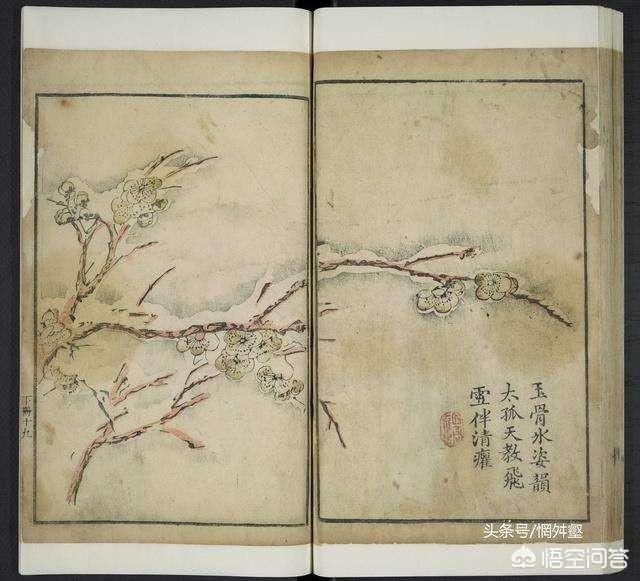 玉骨氷姿韻
太孤天教飛
雪伴清癯
头条号/惘舛壑
悟空问答